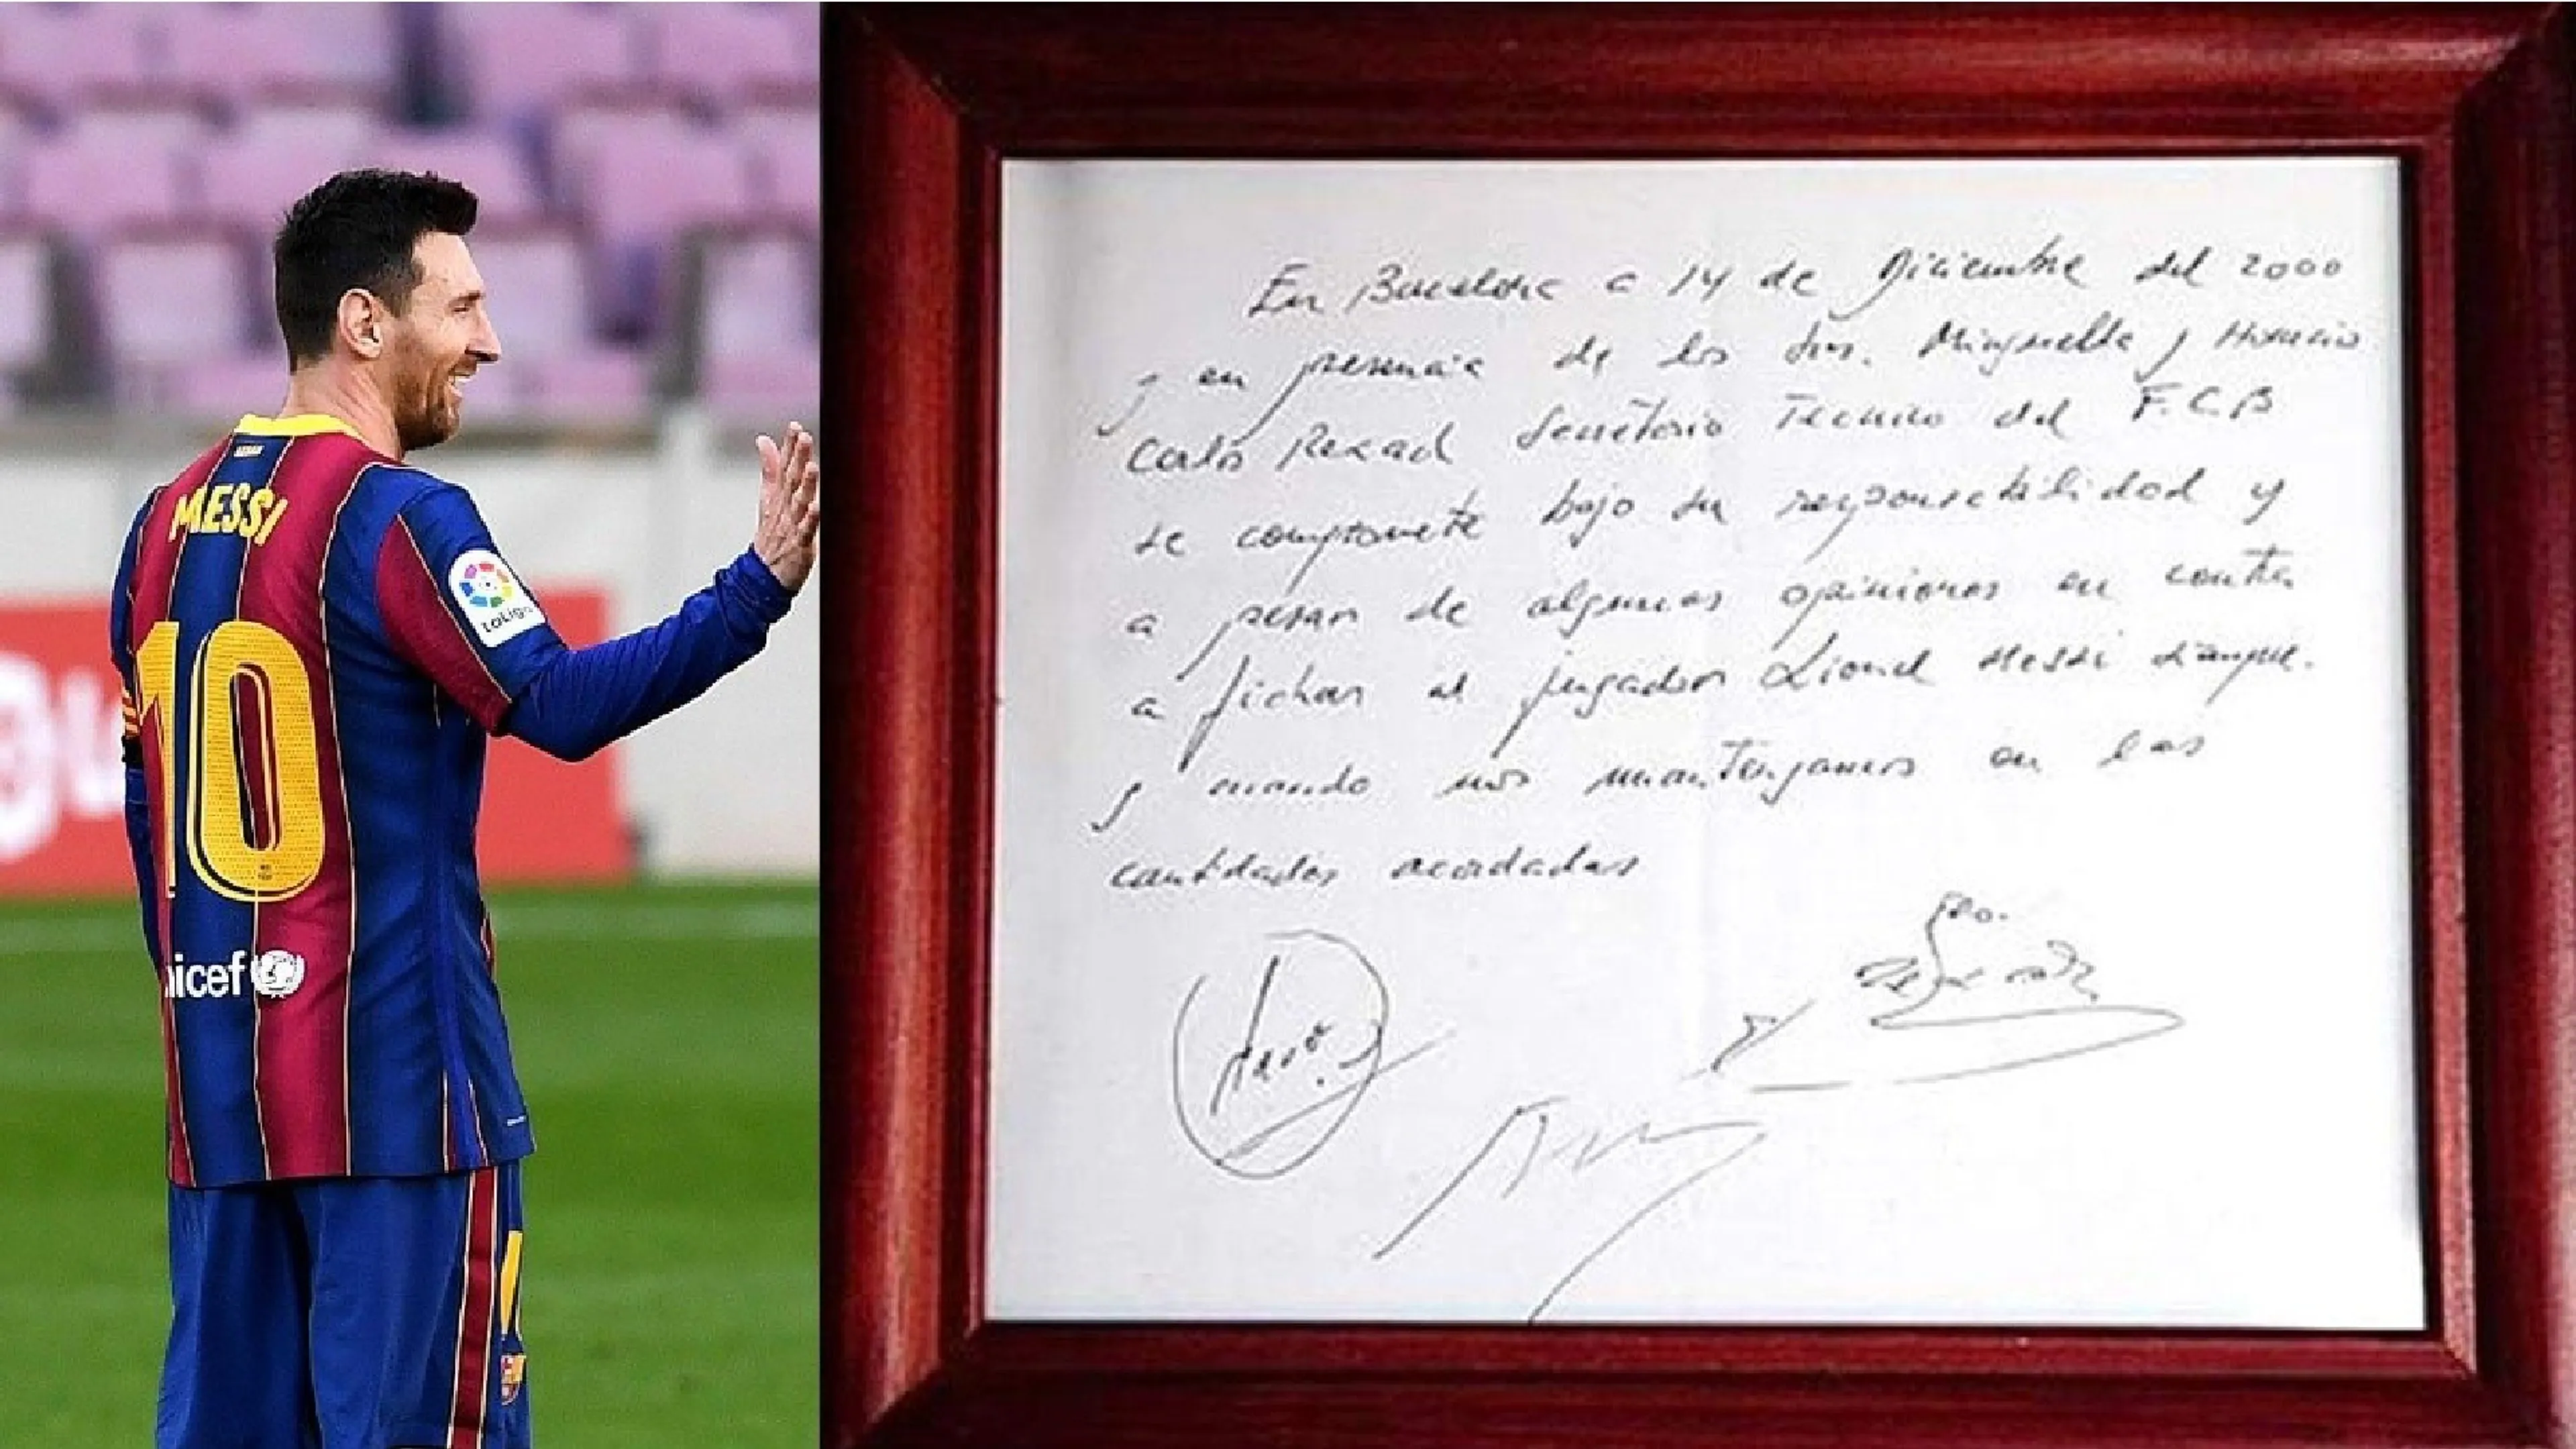 MESSI
10
LaLiga
nicef
En Barcelona a 14 de Diciembre del 2000
y en presencia de los Srs. Minguella y Horacio
Carlos Rexach Secretario Tecnico del F.C.B
se compromete bajo su responsabilidad y
a pesar de algunas opiniones en contra
a fichar al jugador Lionel Messi siempre
y cuando nos mantengamos en las
cantidades acordadas